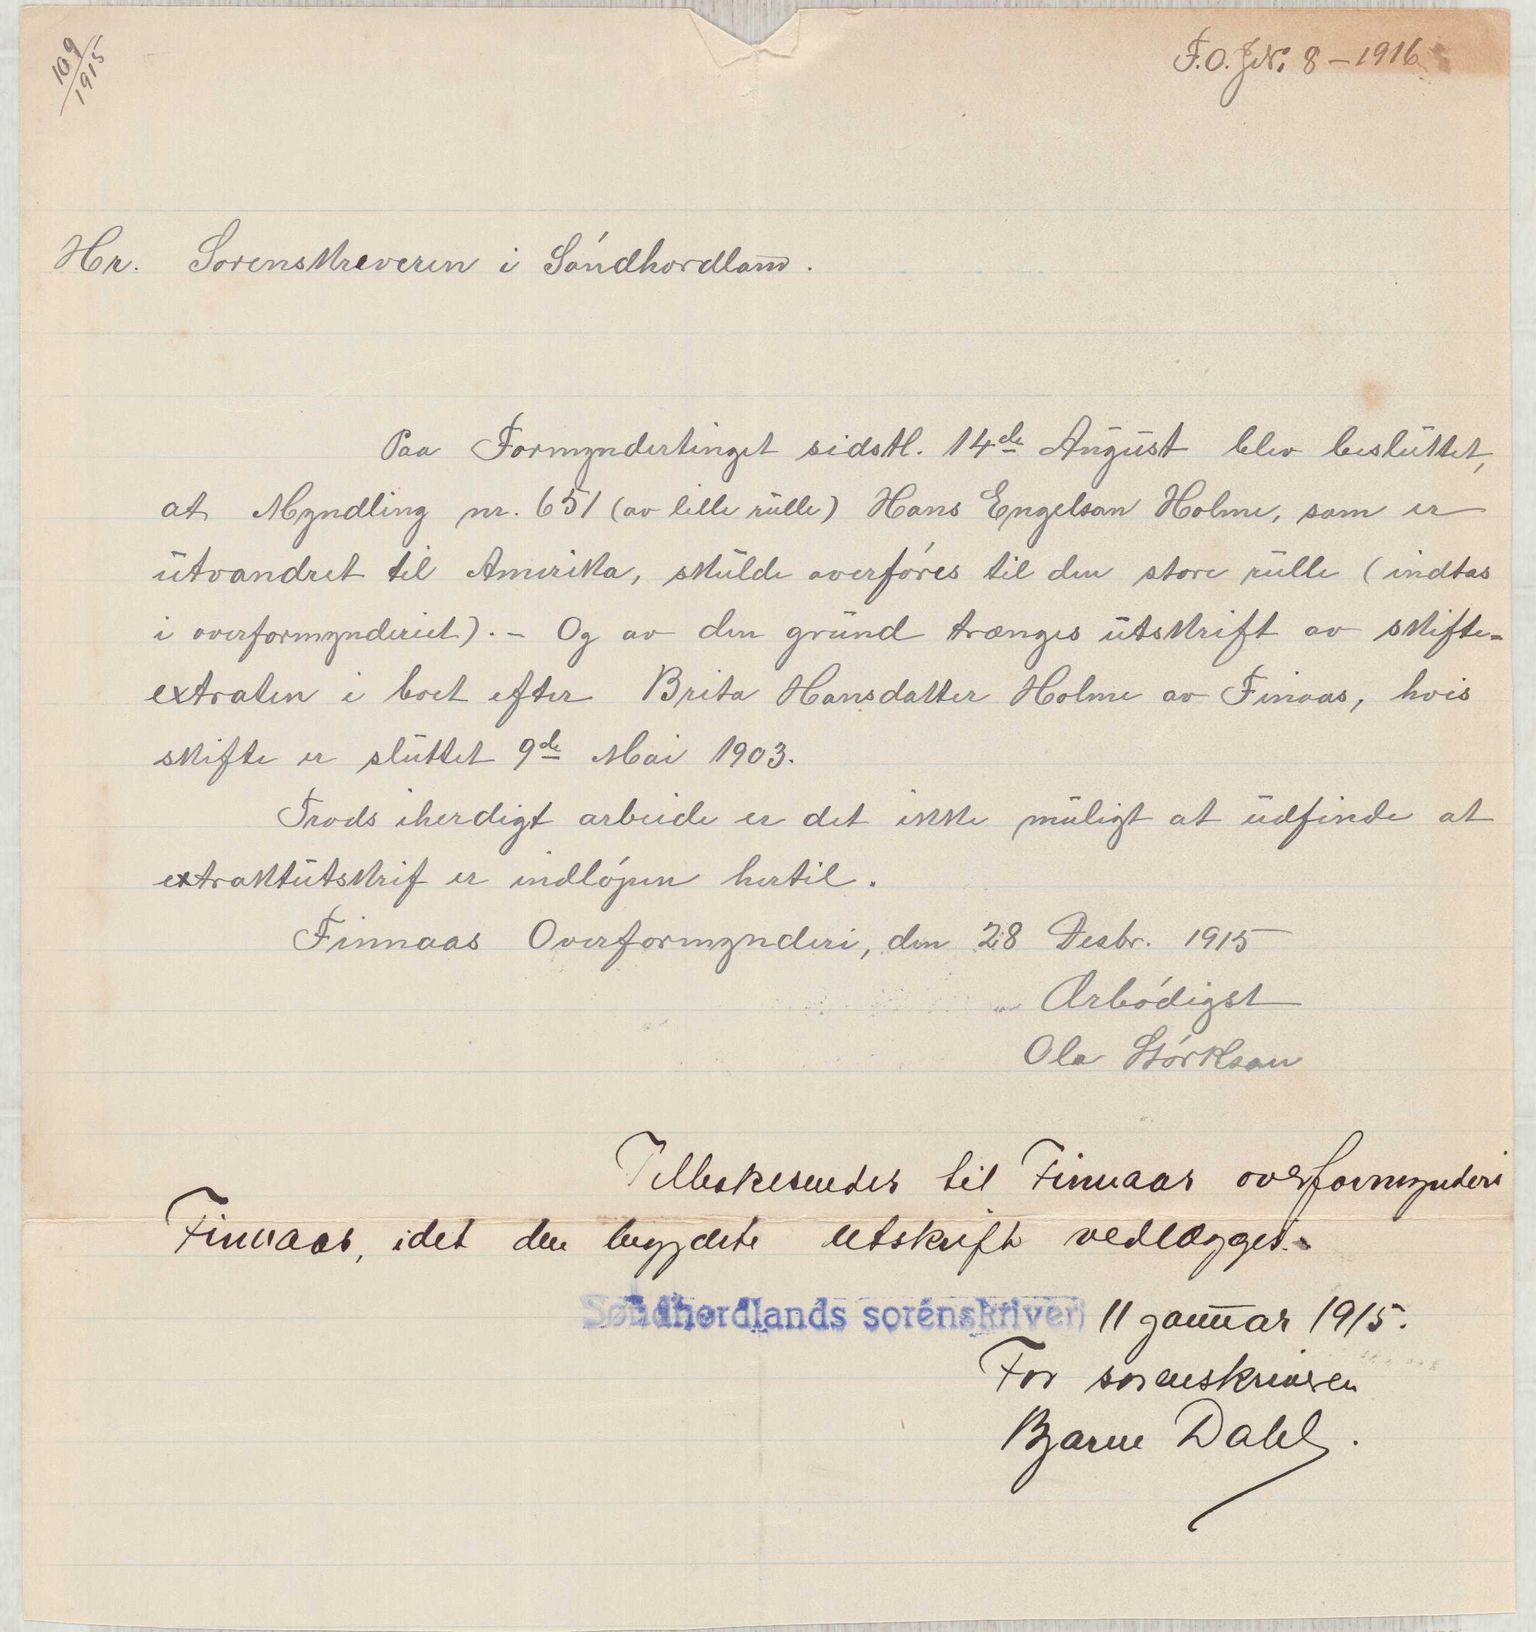 109/1915
F.O. J.N. 8 – 1916
Hr. Sorenskreveren i Sóndhordland.
Paa Formyndertinget sidstl. 14de August blev besluttet,
at Myndling nr. 651 (av lille rulle) Hans Engelsen Holme, som er
utvandret til Amerika, skulde overfóres til den store rulle (indtas
i overformynderiet). – Og av den grund trænges utskrift av skifte-
extrakten i boet efter Brita Hansdatter Holme av Finaas, hvis
skifte er sluttet 9de Mai 1903.
Trods iherdigt arbeide er det ikke muligt at udfinde at
extraktutskrif er indlópen hertil.
Finnaas Overformynderi, den 28 Desbr. 1915
Ærbódigst
Ola Stórkson
Tilbakesendes til Finnaas overformynderi
Finnaas, idet den begjærte utskrift vedlægges.
Søndhordlands sorenskriveri 11 januar 1915.
For sorenskriveren
Bjarne Dahl.